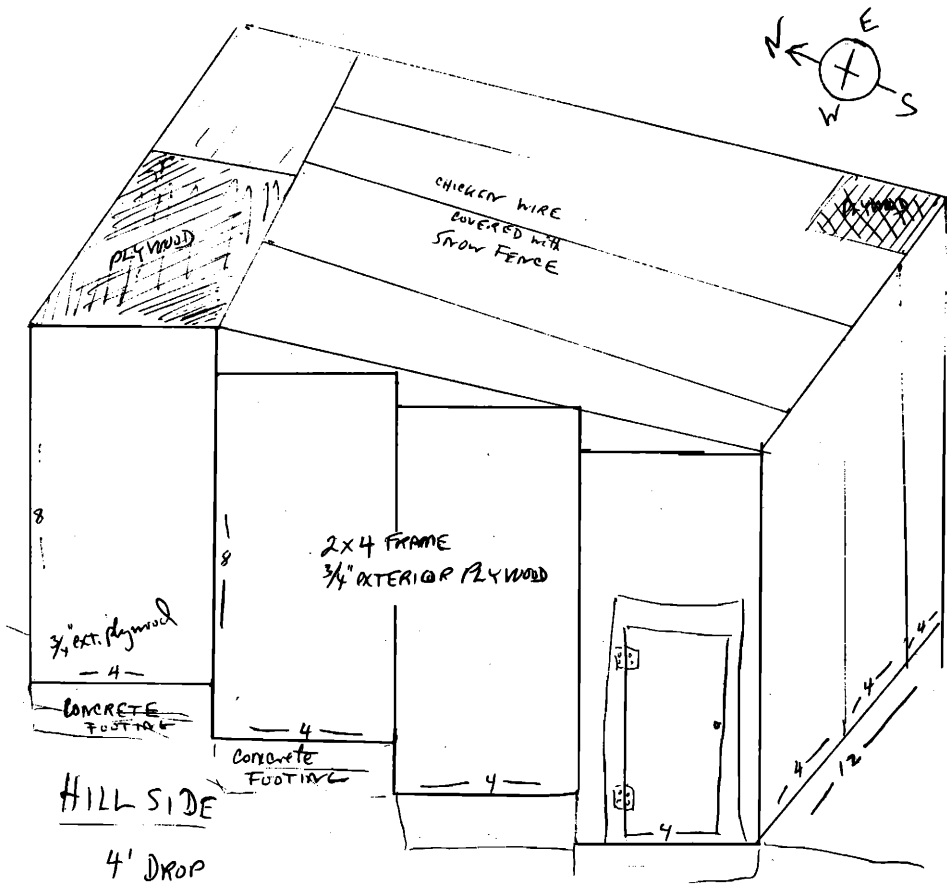 E
N
S
W
CHICKEN WIRE
COVERED with
SNOW FENCE
PLYWOOD
PLYWOOD
8
8
2x4 FRAME
3/4" EXTERIOR PLYWOOD
3/4" ext. plywood
4
CONCRETE
FOOTING
4
Concrete
FOOTING
4
4
4
4
4
12
HILL SIDE
4' DROP